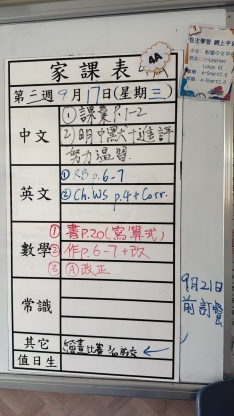 家課表
4A
第三週9月17日(星期三)
中文
①課業P.1-2
②明中默+進評
努力溫習.
英文
①RB p.6-7
②Ch.WS p.4 + Corr.
數學
①書p.20(寫算式)
②作p.6-7+改
③Ⓐ改正
常識
其它
值日生
9月21日
前訂餐
自主學習 網上平台